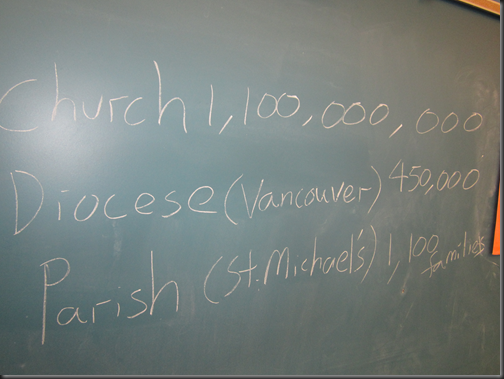 Church 1,100,000,000
Diocese (Vancouver) 450,000
Parish (St. Michael's) 1,100 families